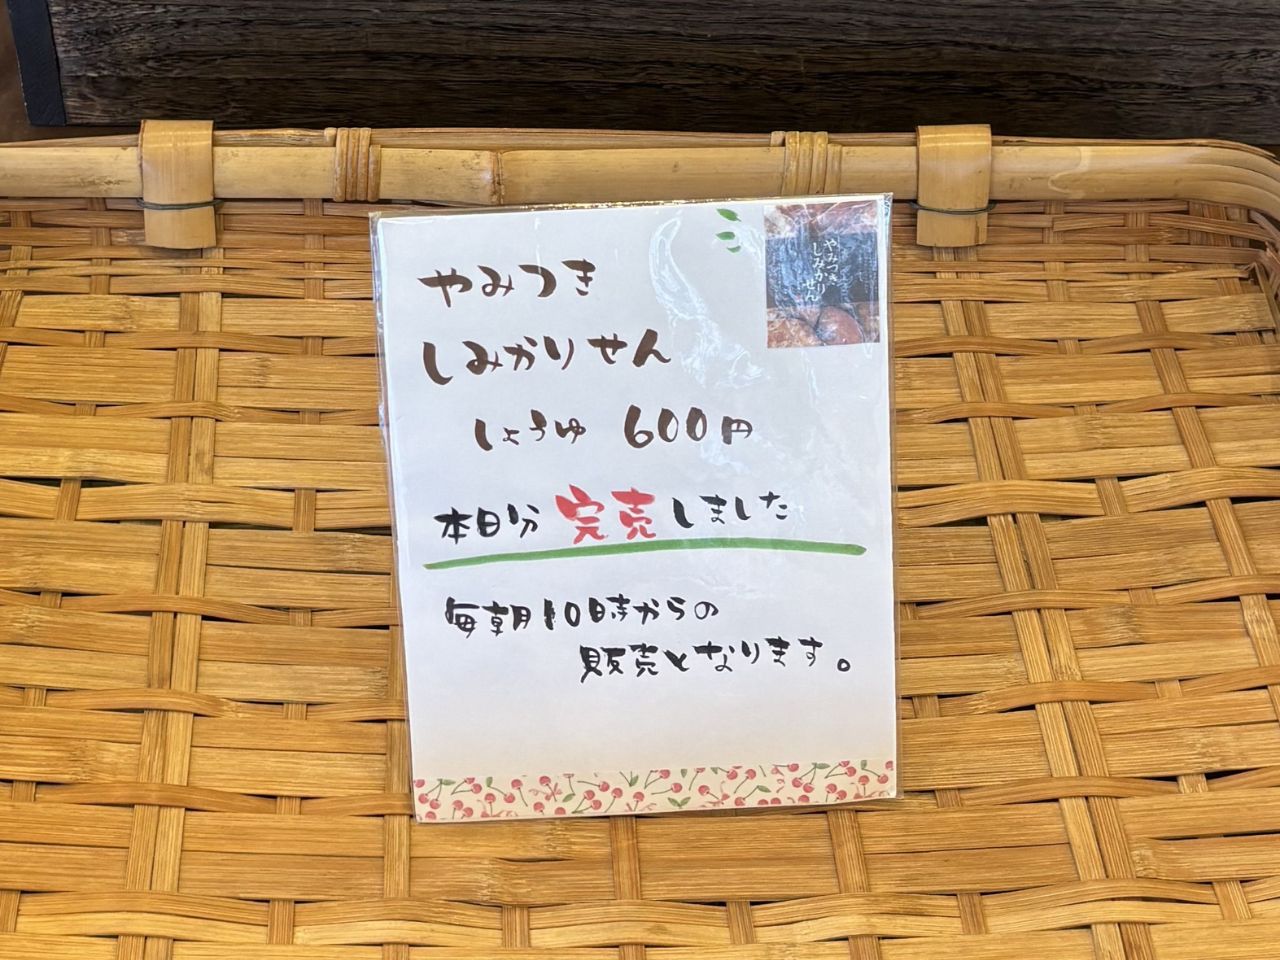 やみつき
しみかりせん
しょうゆ 600円
本日分 完売しました
毎朝10時からの
販売となります。
やみつき
しみかりせん